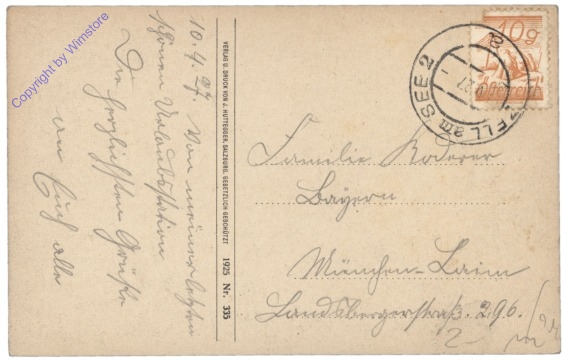 Copyright by Wimstore
10.4.27. Von meiner letzten
schönen Urlaubsstation
Die herzlichsten Grüße
an Euch alle
VERLAG U. DRUCK VON J. HUTTEGGER, SALZBURG. GESETZLICH GESCHÜTZT 1925 Nr. 335
10g
Österreich
ZELL am SEE 2
27
Familie Roderer
Bayern
München-Laim
Landsbergerstraß. 296.